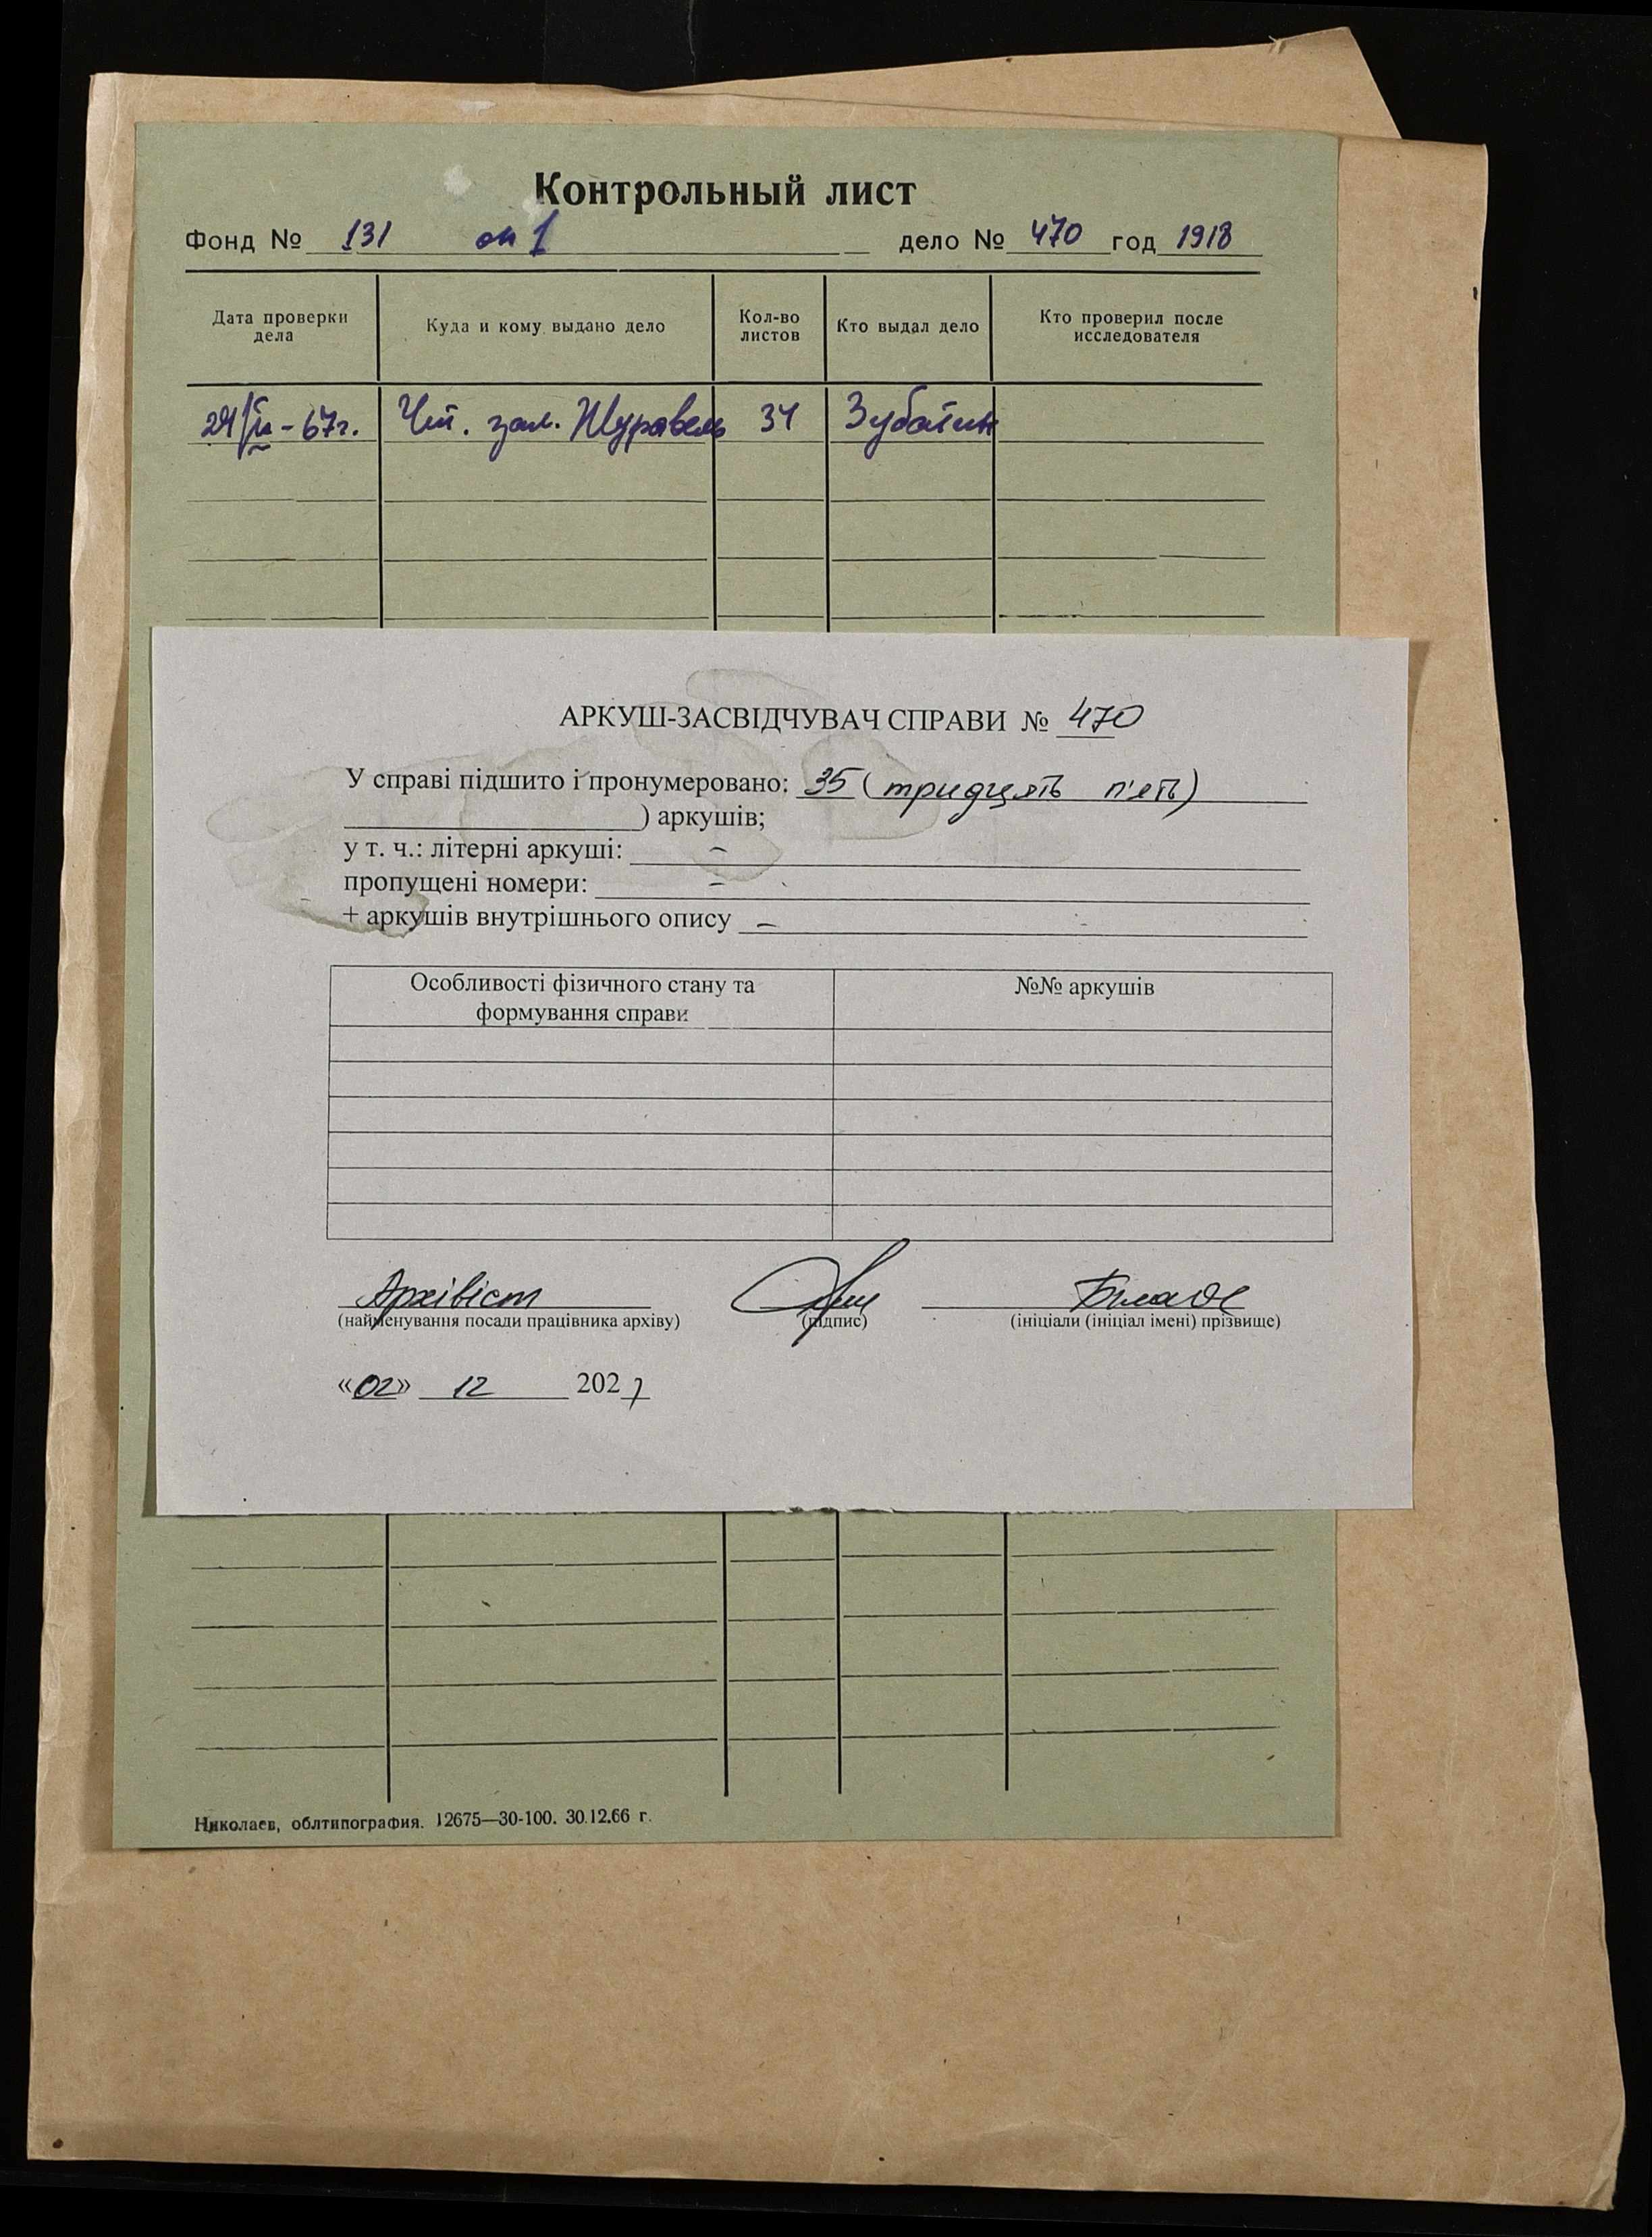 Контрольный лист
Фонд № 131 оп 1 дело № 470 год 1918
Дата проверки дела Куда и кому выдано дело Кол-во листов Кто выдал дело Кто проверил после исследователя
67г. Чит. зал. Журавель 34 Зубатин
АРКУШ-ЗАСВІДЧУВАЧ СПРАВИ № 470
У справі підшито і пронумеровано: 35 (тридцять п'ять)
) аркушів;
у т. ч.: літерні аркуші: –
пропущені номери: –
+ аркушів внутрішнього опису –
Особливості фізичного стану та №№ аркушів
формування справи
Архівіст
(найменування посади працівника архіву) (підпис) (ініціали (ініціал імені) прізвище)
«02» 12 202
Николаев, облтипография. 12675—30-100. 30.12.66 г.